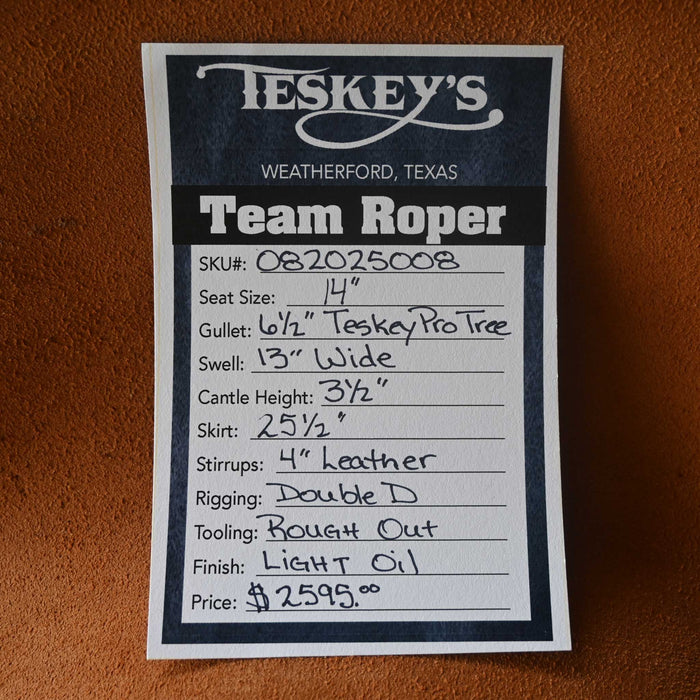 TESKEY'S
WEATHERFORD, TEXAS
Team Roper
SKU#: 082025008
Seat Size: 14"
Gullet: 6½" Teskey Pro Tree
Swell: 13" Wide
Cantle Height: 3½"
Skirt: 25½"
Stirrups: 4" Leather
Rigging: Double D
Tooling: Rough Out
Finish: Light Oil
Price: $2595.00